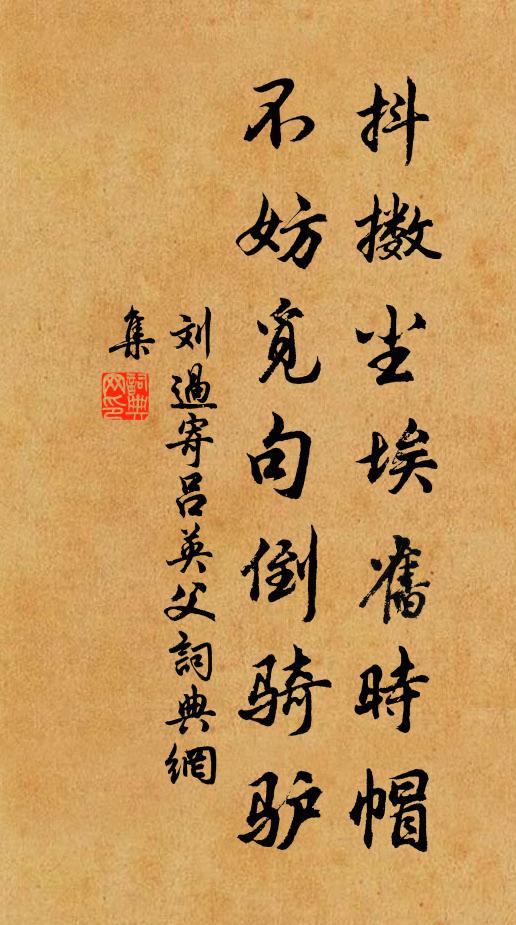 抖擞尘埃舊時帽
不妨覓句倒骑驴
刘過寄吕英父詞典網
集
詞典
网印